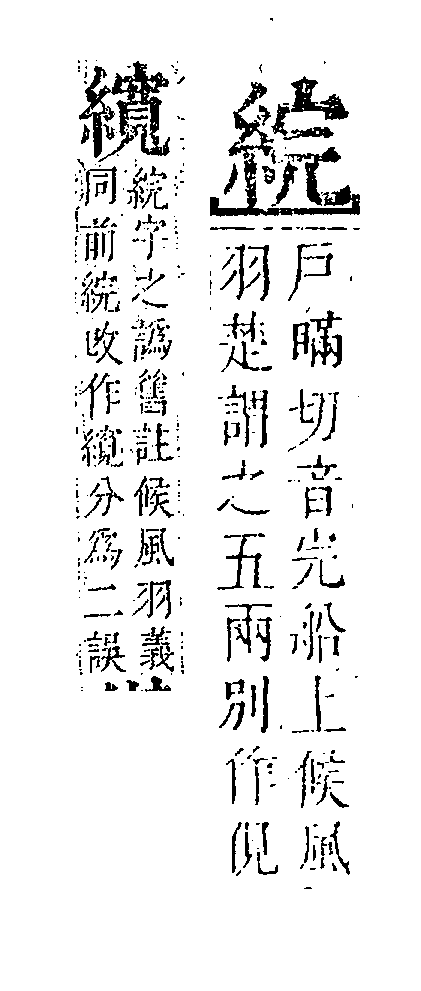 綄
戶瞞切音完船上候風
羽楚謂之五兩別作俔
綄字之譌舊註候風羽義
同前綄改作分爲二誤